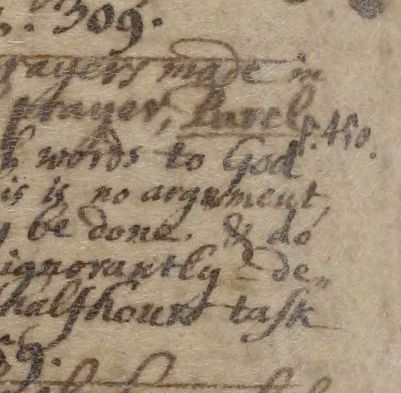 . 309.
rayers made in
prayer, Parel p. 450.
words to God
is is no argument,
y be done. & do
ignorantly - de„
halfhours task
59.